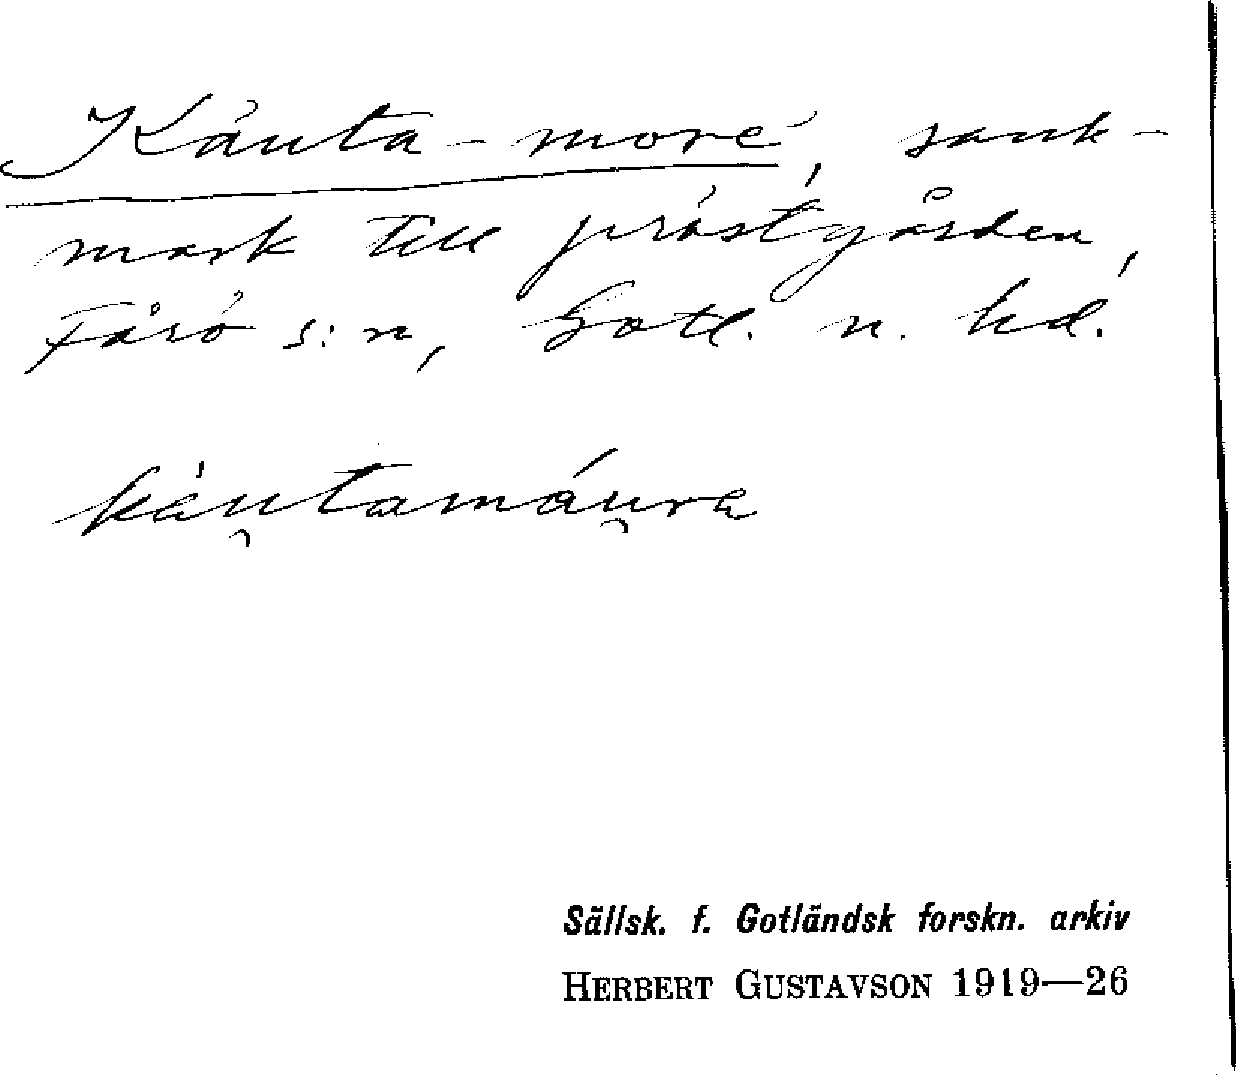 Käuta-more, sank-
mark till prästgården,
Fårö s:n, Gotl. n. hd.
käu̯tamáu̯ra
Sällsk. f. Gotländsk forskn. arkiv
HERBERT GUSTAVSON 1919—26